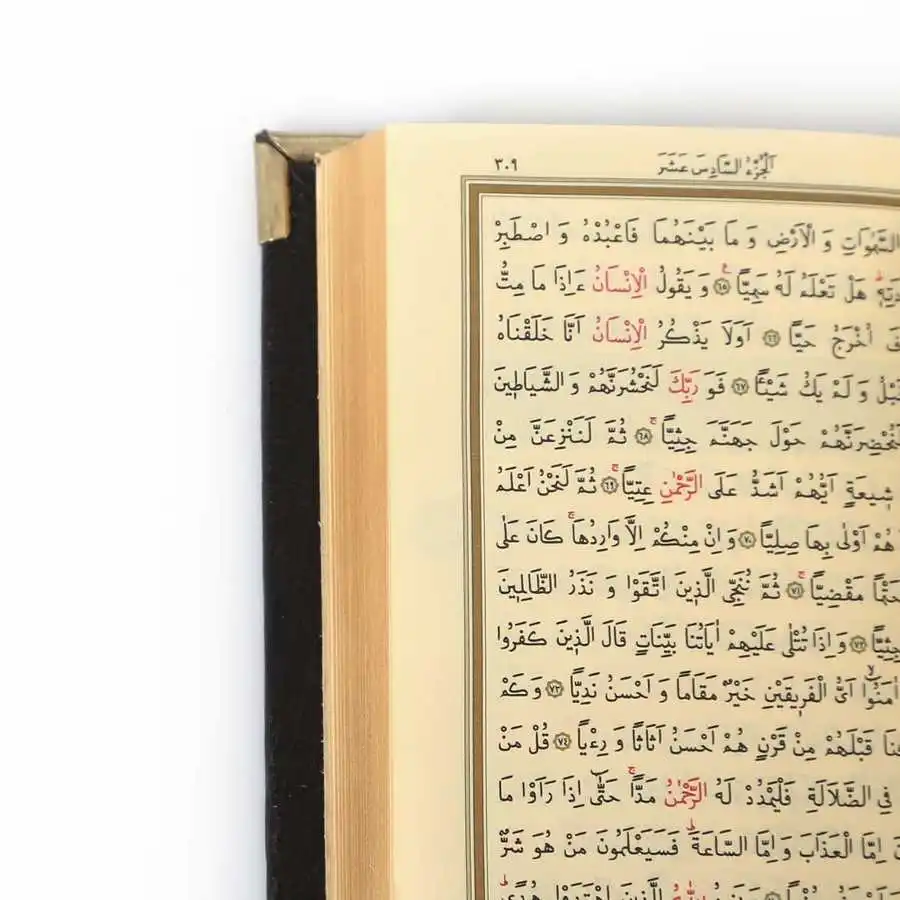 اَلْجُزْءُ السَّادِسَ عَشَرَ ٣٠٩
السَّمٰوَاتِ وَ الْاَرْضِ وَ مَا بَيْنَهُمَا فَاعْبُدْهُ وَ اصْطَبِرْ
هَلْ تَعْلَمُ لَهُ سَمِيًّا ۚ ٦٥ وَ يَقُولُ الْاِنْسَانُ ءَاِذَا مَا مِتُّ
اُخْرَجُ حَيًّا ٦٦ اَوَلَا يَذْكُرُ الْاِنْسَانُ اَنَّا خَلَقْنَاهُ
وَ لَمْ يَكُ شَيْئًا ٦٧ فَوَ رَبِّكَ لَنَحْشُرَنَّهُمْ وَ الشَّيَاطٖينَ
لَنُحْضِرَنَّهُمْ حَوْلَ جَهَنَّمَ جِثِيًّا ۚ ٦٨ ثُمَّ لَنَنْزِعَنَّ مِنْ
شٖيعَةٍ اَيُّهُمْ اَشَدُّ عَلَى الرَّحْمٰنِ عِتِيًّا ۚ ٦٩ ثُمَّ لَنَحْنُ اَعْلَمُ
هُمْ اَوْلٰى بِهَا صِلِيًّا ٧٠ وَ اِنْ مِنْكُمْ اِلَّا وَارِدُهَا ۚ كَانَ عَلٰى
حَتْمًا مَقْضِيًّا ۚ ٧١ ثُمَّ نُنَجِّى الَّذٖينَ اتَّقَوْا وَ نَذَرُ الظَّالِمٖينَ
جِثِيًّا ٧٢ وَ اِذَا تُتْلٰى عَلَيْهِمْ اٰيَاتُنَا بَيِّنَاتٍ قَالَ الَّذٖينَ كَفَرُوا
اٰمَنُٓوا ۙ اَىُّ الْفَرٖيقَيْنِ خَيْرٌ مَقَامًا وَ اَحْسَنُ نَدِيًّا ٧٣ وَ كَمْ
قَبْلَهُمْ مِنْ قَرْنٍ هُمْ اَحْسَنُ اَثَاثًا وَ رِءْيًا ٧٤ قُلْ مَنْ
فِى الضَّلَالَةِ فَلْيَمْدُدْ لَهُ الرَّحْمٰنُ مَدًّا ۚ حَتّٰٓى اِذَا رَاَوْا مَا
اِمَّا الْعَذَابَ وَ اِمَّا السَّاعَةَ ۜ فَسَيَعْلَمُونَ مَنْ هُوَ شَرٌّ
الَّذٖينَ اهْتَدَوْا هُدًى